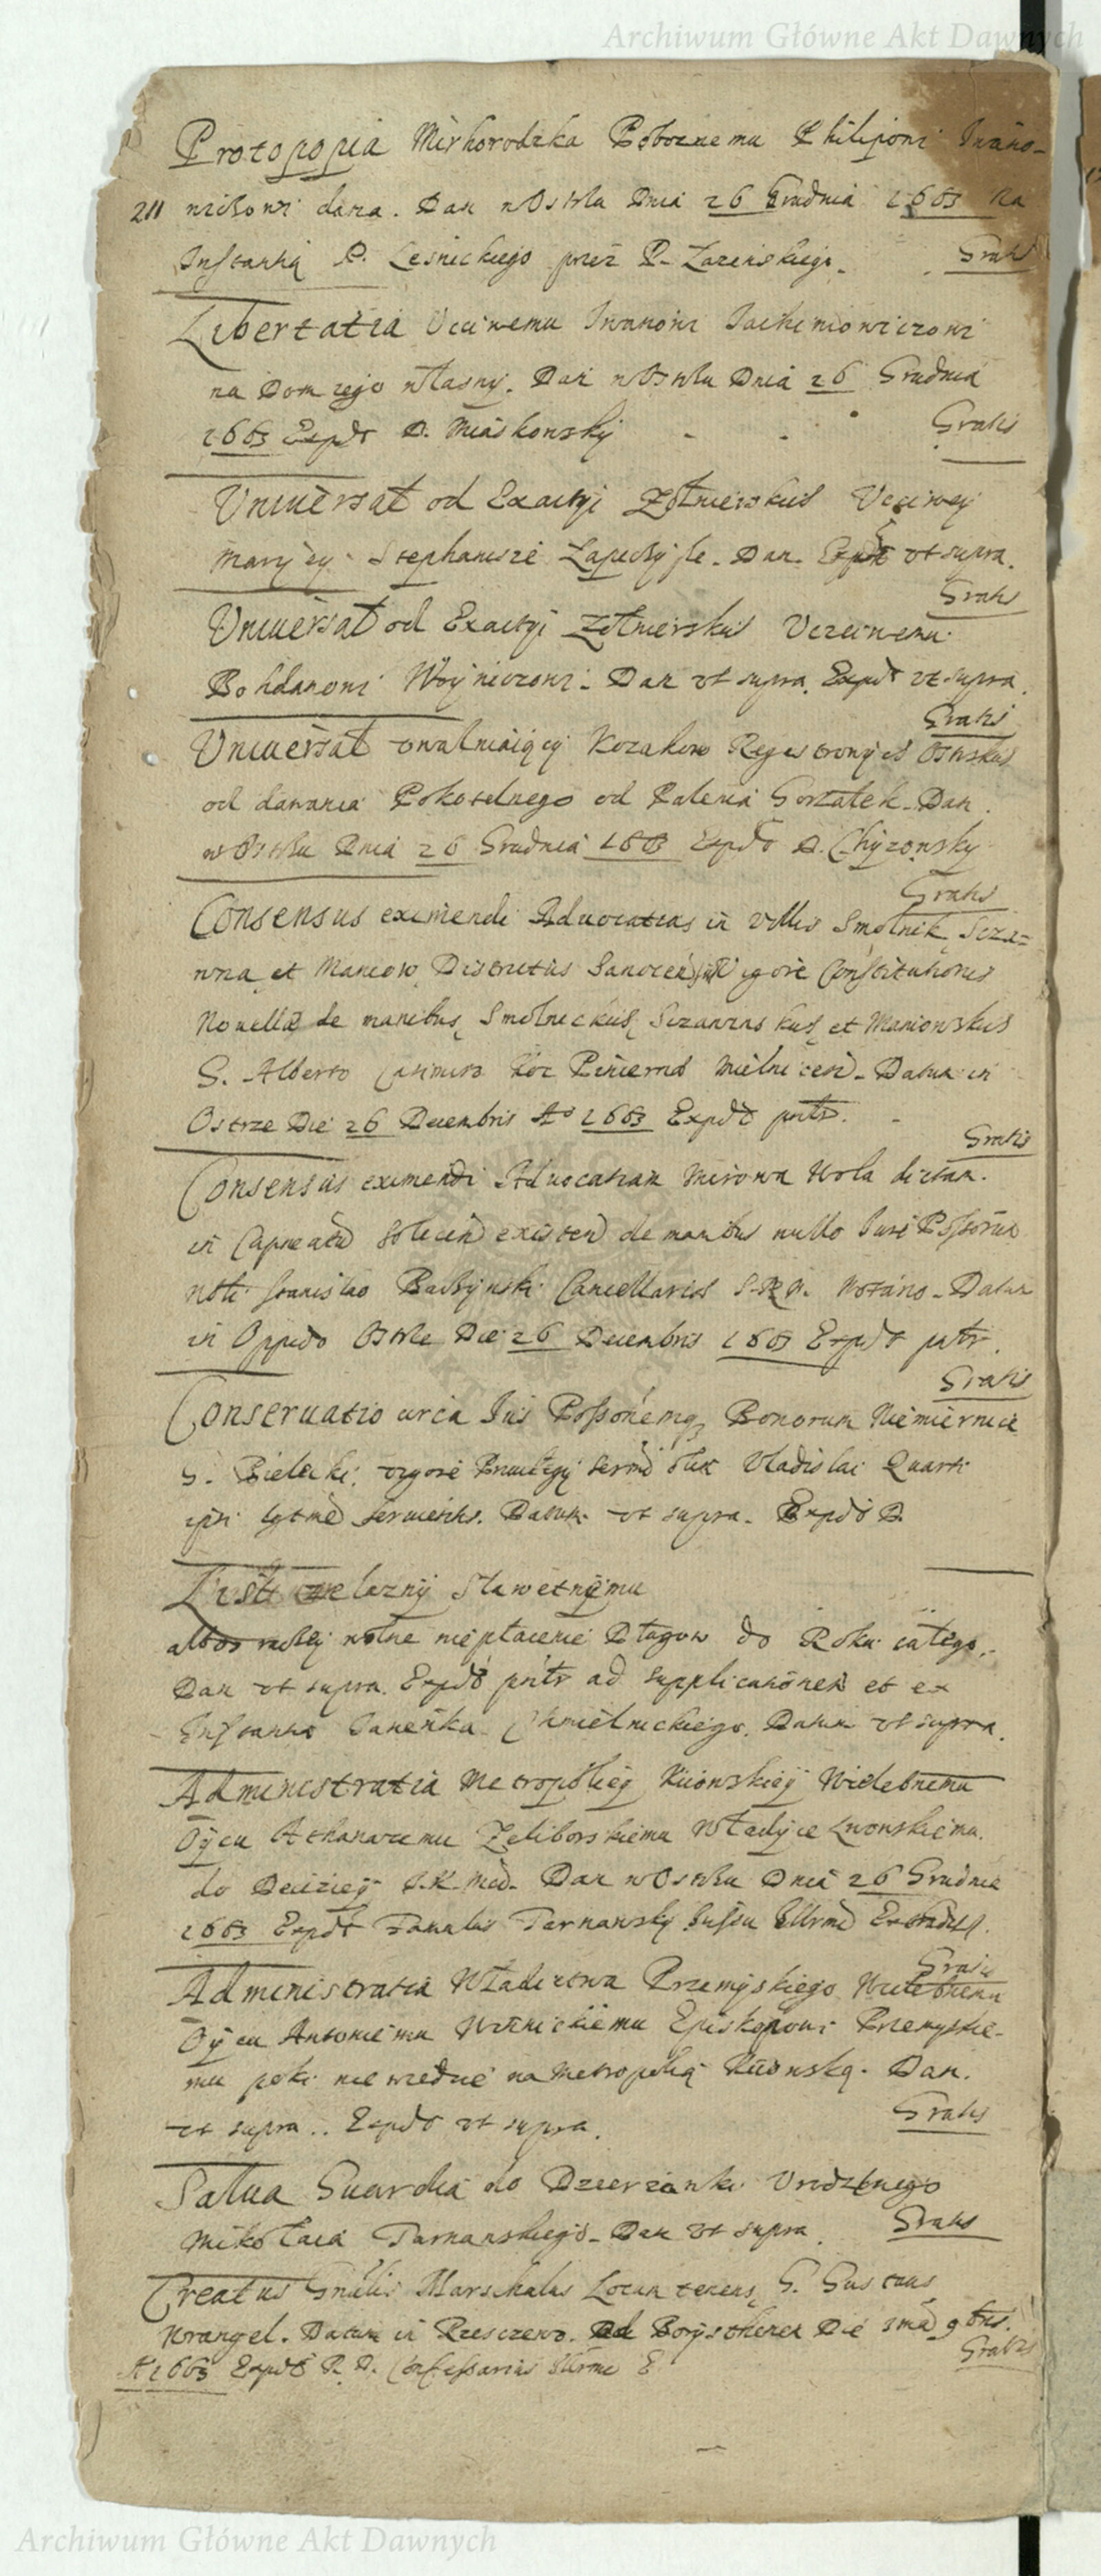 Archiwum Główne Akt Dawnych
Protopopia Mirhorodzka Pobożnemu Philiponi Iwano-
211 wiczowi dana. Dan w Ostrku Dnia 26 Grudnia 1663 na
Instantią P. Lesnickiego przez P. Gratis
Libertatia Uczciwemu Iwanowi Jachimowiczowi
na Dom jego własny. Dan w Ostrku Dnia 26 Grudnia
1663 Expdt D. Miaskowsky Gratis
Uniwersał od Exactyi Zołnierskich Uczciwey
Maryiey Stephanisze Dan. Expdt ut supra.
Gratis
Uniwersał od Exactyi Zołnierskich Uczciwemu
Bohdanowi Woyniczowi. Dan ut supra. Expdt ut supra.
Gratis
Uniwersał uwalniaiący Kozakow Regestrowych Ostrskich
od dawania Pokotelnego od Palenia Gorzałek. Dan
w Ostrku Dnia 26 Grudnia 1663 Expdt D. Chyzowsky
Gratis
Consensus eximendi Advocatias in Villis Smolnik, Szcza-
wna et Maniow Districtus Sanocensis vigore Constitutionis
Novellae de manibus Smolnickich Szczawinskich et Maniowskich
G. Alberto Casimiro Koc Pincerna Mielnicen. Datum in
Ostrze Die 26 Decembris Ao 1663 Expdt pntr.
Gratis
Consensus eximendi Advocatiam Mirowa Wola dictam.
in Capneatu Solecen existen de manibus nullo Jure Possessorum
Nbli Stanislao Cancellariae S.R.M. Notario. Datum
in Oppido Ostrze Die 26 Decembris 1663 Expdt pntr.
Gratis
Conservatio circa Jus Possonemq Bonorum Niemiernice
G. Bielecki, vigore Privilegy Sermi olim Vladislai Quarti
ipsi lgtme servientis. Datum ut supra. Expdt D.
List zelazny Sławetnemu
albo raczey wolne niepłacenie Długow do Roku całego.
Dan ut supra. Expdt pntr ad supplicationem et ex
Instantia Janenka Chmielnickiego. Datum ut supra.
Administratia Metropoliey Kiiowskiey Wielebnemu
Oycu Athanazemu Zeliborskiemu Władyce Lwowskiemu.
do Deciziey J.K.Mci. Dan w Ostrku Dnia 26 Grudnia
1663 Expdt Famulus Tarnawsky Jussu Illrmi
Gratis
Administratia Władictwa Przemyskiego Wielebnemu
Oycu Antoniemu Winnickiemu Episkopowi Przemyskie-
mu poki nie wiedzie na Metropolią Kiiowską. Dan.
ut supra.. Expdt ut supra. Gratis
Salua Guardia do Dzierzanki Urodzonego
Mikołaia Tarnawskiego. Dan ut supra. Gratis
Creatus Gnalis Marschalus Locum tenens, G. Gustaus
Wrangel. Datum in Rzesczewo. Ad Borysthenem Die 9bris.
Gratis
A 1663 Expdt P. D. Confessarius
Archiwum Główne Akt Dawnych